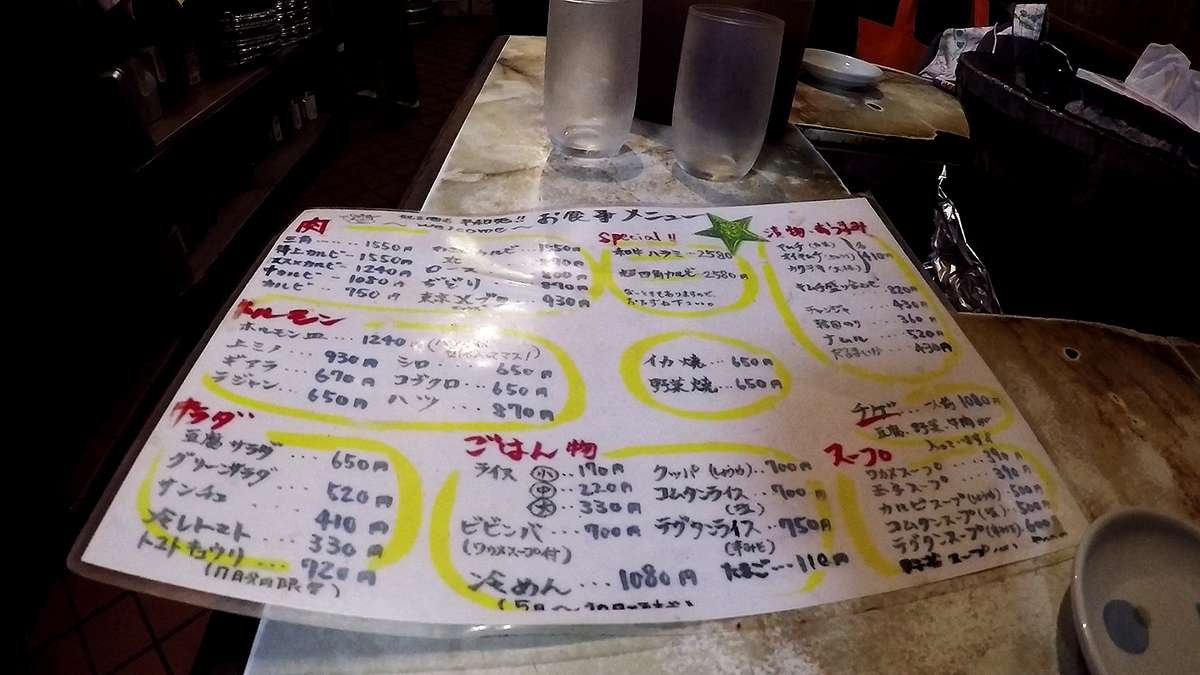 お食事メニュー
～welcome～
肉
三角……1550円
特上カルビー1550円
1240円
中カルビー1080円
カルビー750円
ロース
930円
Special!!
和牛ハラミ…2580
四角カルビ 2580円
漬物・おつまみ
410円
チャンジャ 430円
韓国のり 360円
ナムル 520円
430円
ホルモン
ホルモン皿……1240円
上ミノ 930円
ギアラ 670円
ラジャン 650円
シロ…650円
コブクロ…650円
ハツ…870円
イカ焼…650円
野菜焼…650円
サラダ
豆腐サラダ 650円
グリーンサラダ 520円
サンチュ 410円
冷しトマト 330円
トマトキュウリ…720円
ごはん物
ライス 小…170円
中…220円
大…330円
ビビンバ…900円
(ワカメスープ付)
冷めん…1080円
クッパ
コムタンライス…900円
ラグタンライス…950円
たまご…110円
チゲ…一人前1080円
豆腐、野菜、牛肉が
入ってます
スープ
ワカメスープ 390円
玉子スープ 390円
カルビスープ 500円
コムタンスープ(塩) 500円
ラグタンスープ 600円
野菜スープ